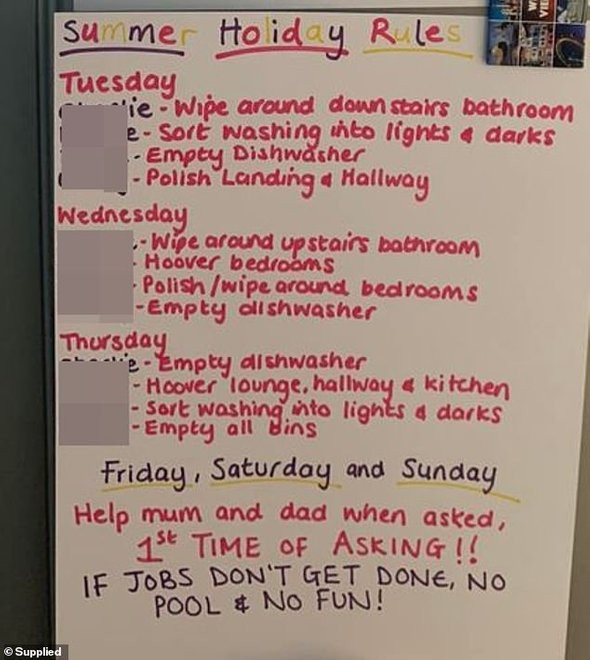 Summer Holiday Rules
Tuesday
ie - Wipe around downstairs bathroom
e - Sort washing into lights & darks
- Empty Dishwasher
- Polish Landing & Hallway
Wednesday
- Wipe around upstairs bathroom
Hoover bedrooms
Polish/wipe around bedrooms
- Empty dishwasher
Thursday
e - Empty dishwasher
- Hoover lounge, hallway & kitchen
- Sort washing into lights & darks
- Empty all bins
Friday, Saturday and Sunday
Help mum and dad when asked,
1st TIME OF ASKING!!
IF JOBS DON'T GET DONE, NO
POOL & NO FUN!
© Supplied